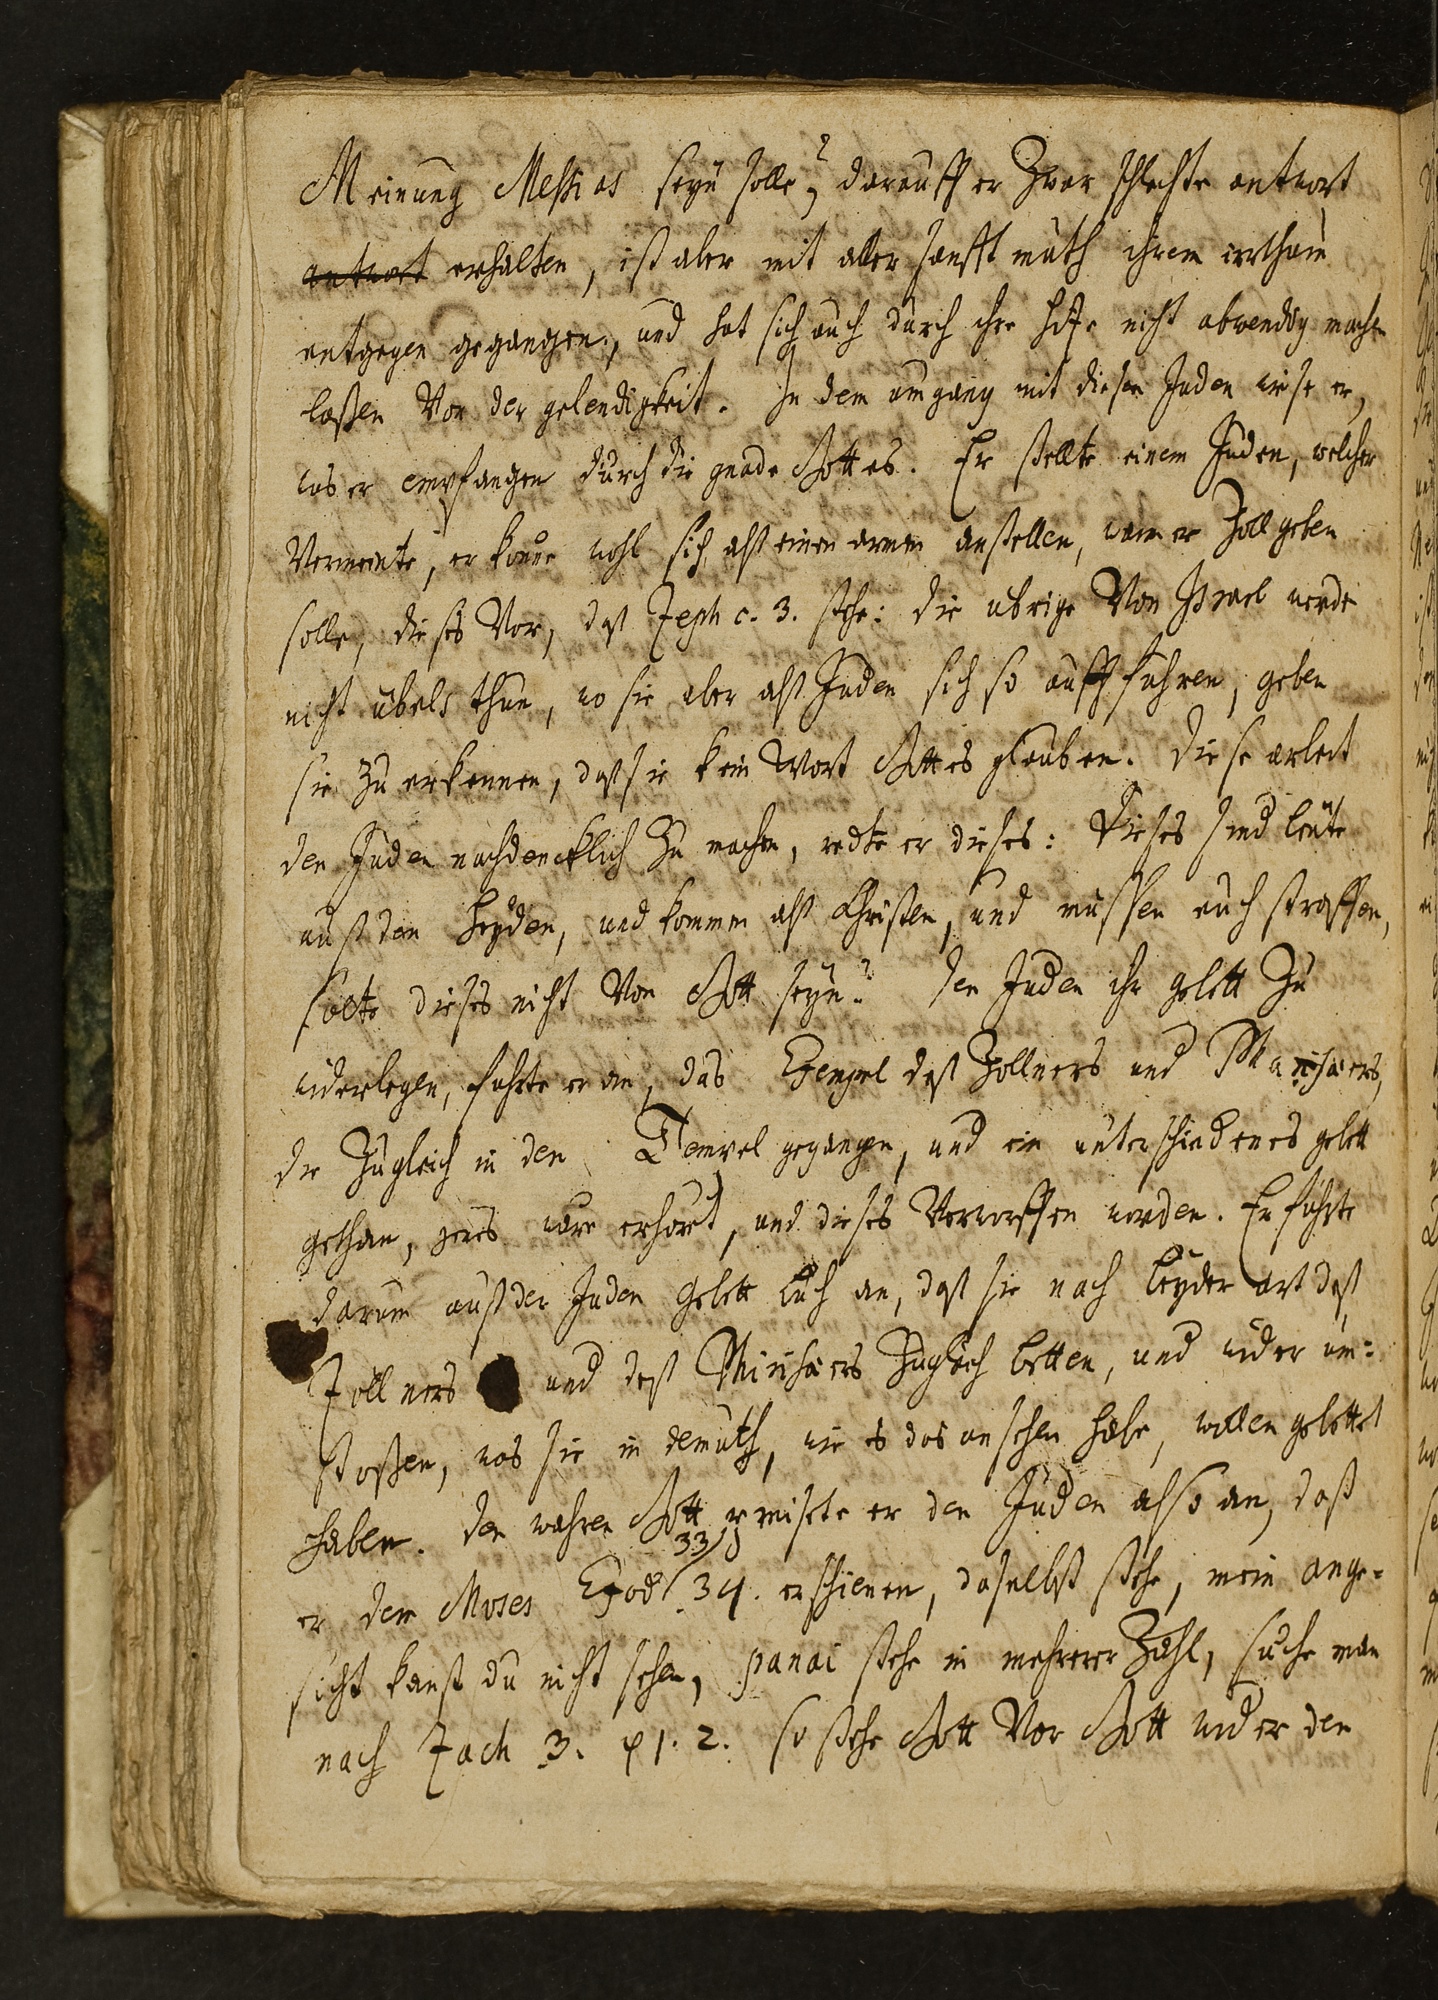 Meinung Messias seyn solle? darauff er zwar schlechte antwort
antwort erhalten, ist aber mit aller sanfftmuth ihrem irrthum
entgegen gegangen, und hat sich auch durch ihre hitze nicht abwendig mach
laßen von der gelendigkeit. In dem umgang mit diesen Juden wiese er,
was er empfangen durch die gnade Gottes. Er stellte einem Juden, welcher
vermeinte, er könne wohl sich alß einen armen anstellen, wenn er Zoll geben
solle, dieses vor, daß Zeph c. 3. stehe: die ubrige von Israel werde
nicht übels thun, wo sie aber alß Juden sich so auffführen, geben
sie zu erkennen, daß sie kein wort Gottes glauben. Diese arbeit
den Juden nachdencklich zu machen, redte er dieses: Dieses sind leute
auß den Heyden, und kommen alß Christen, und mussen euch straffen,
solte dieses nicht von Gott seyn? den Juden ihr gebett zu
widerlegen, führte er an, das Exempel deß Zollners und Pharisäers,
die zugleich in den Tempel gegangen, und ein unterschiedenes gebett
gethan, jenes ware erhöret, und dieses verworffen worden. Er führte
darum auß der Juden Gebett buch an, daß sie nach beyder art deß
Zollners und deß Pharisäers zugleich betten, und wider um:
stoßen, was sie in demuth, wie es das ansehen habe, wollen gebettet
haben. Den wahren Gott er den Juden also an, daß
er dem Moses Exod 33 34. erschienen, daselbst stehe, mein ange=
sicht kanst du nicht sehen, panai stehe in mehrerer Zahl, suche man
nach Zach 3. 1. 2. so stehe Gott vor Gott wider den